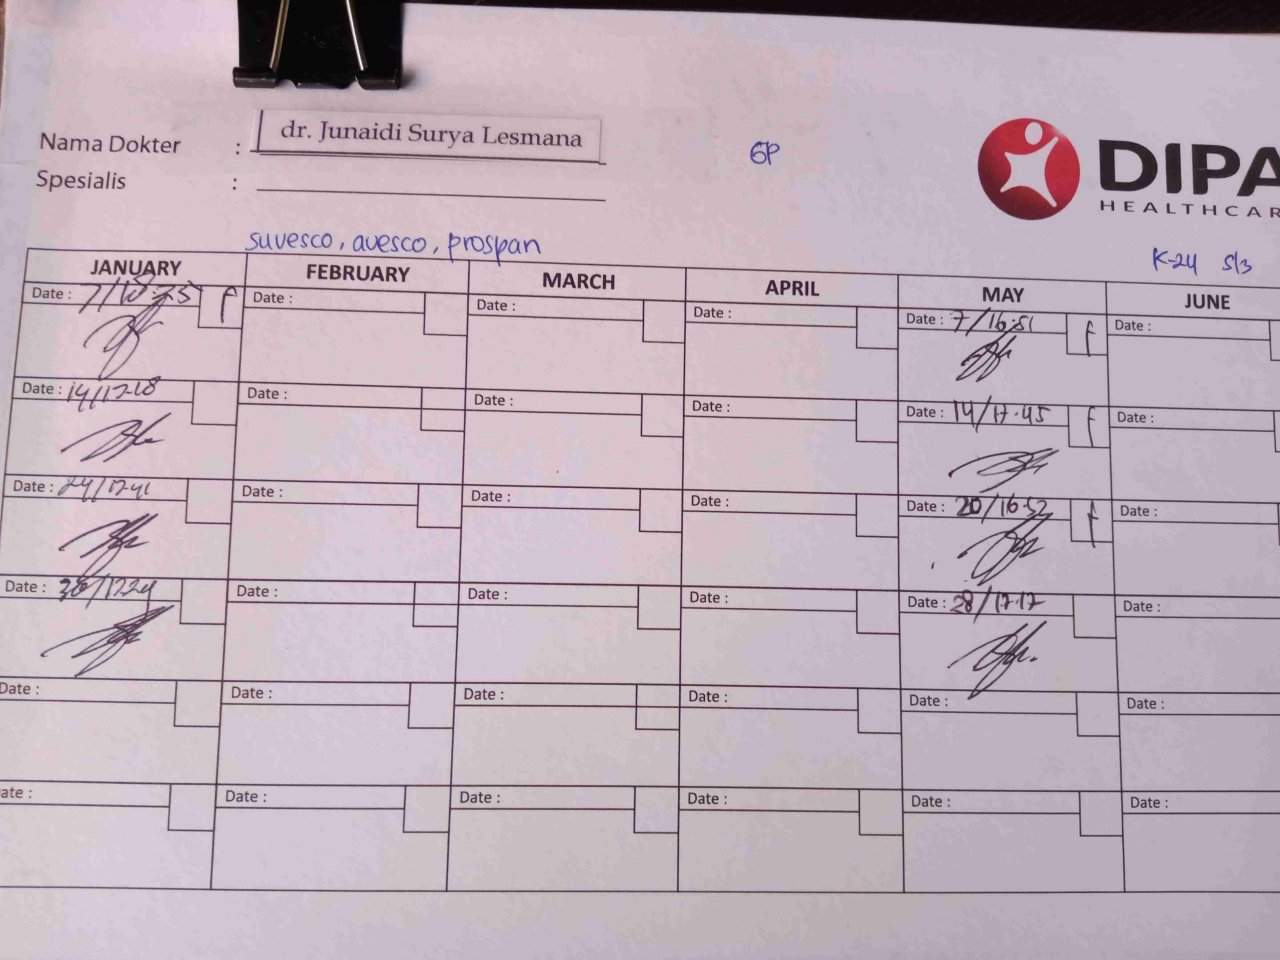 Nama Dokter : dr. Junaidi Surya Lesmana
GP
DIPA
HEALTHCAR
Spesialis :
suvesco, avesco, prospan
K-24 S/3
JANUARY FEBRUARY MARCH APRIL MAY JUNE
Date : 7/18:25 f Date : Date : Date : Date : 7/16:51 f Date :
Date : 14/17-18 Date : Date : Date : Date : 14/17.45 f Date :
Date : 24/1741 Date : Date : Date : Date : 20/16.52 f Date :
Date : /1724 Date : Date : Date : Date : 28/17.17 Date :
Date : Date : Date : Date : Date : Date :
ate : Date : Date : Date : Date : Date :